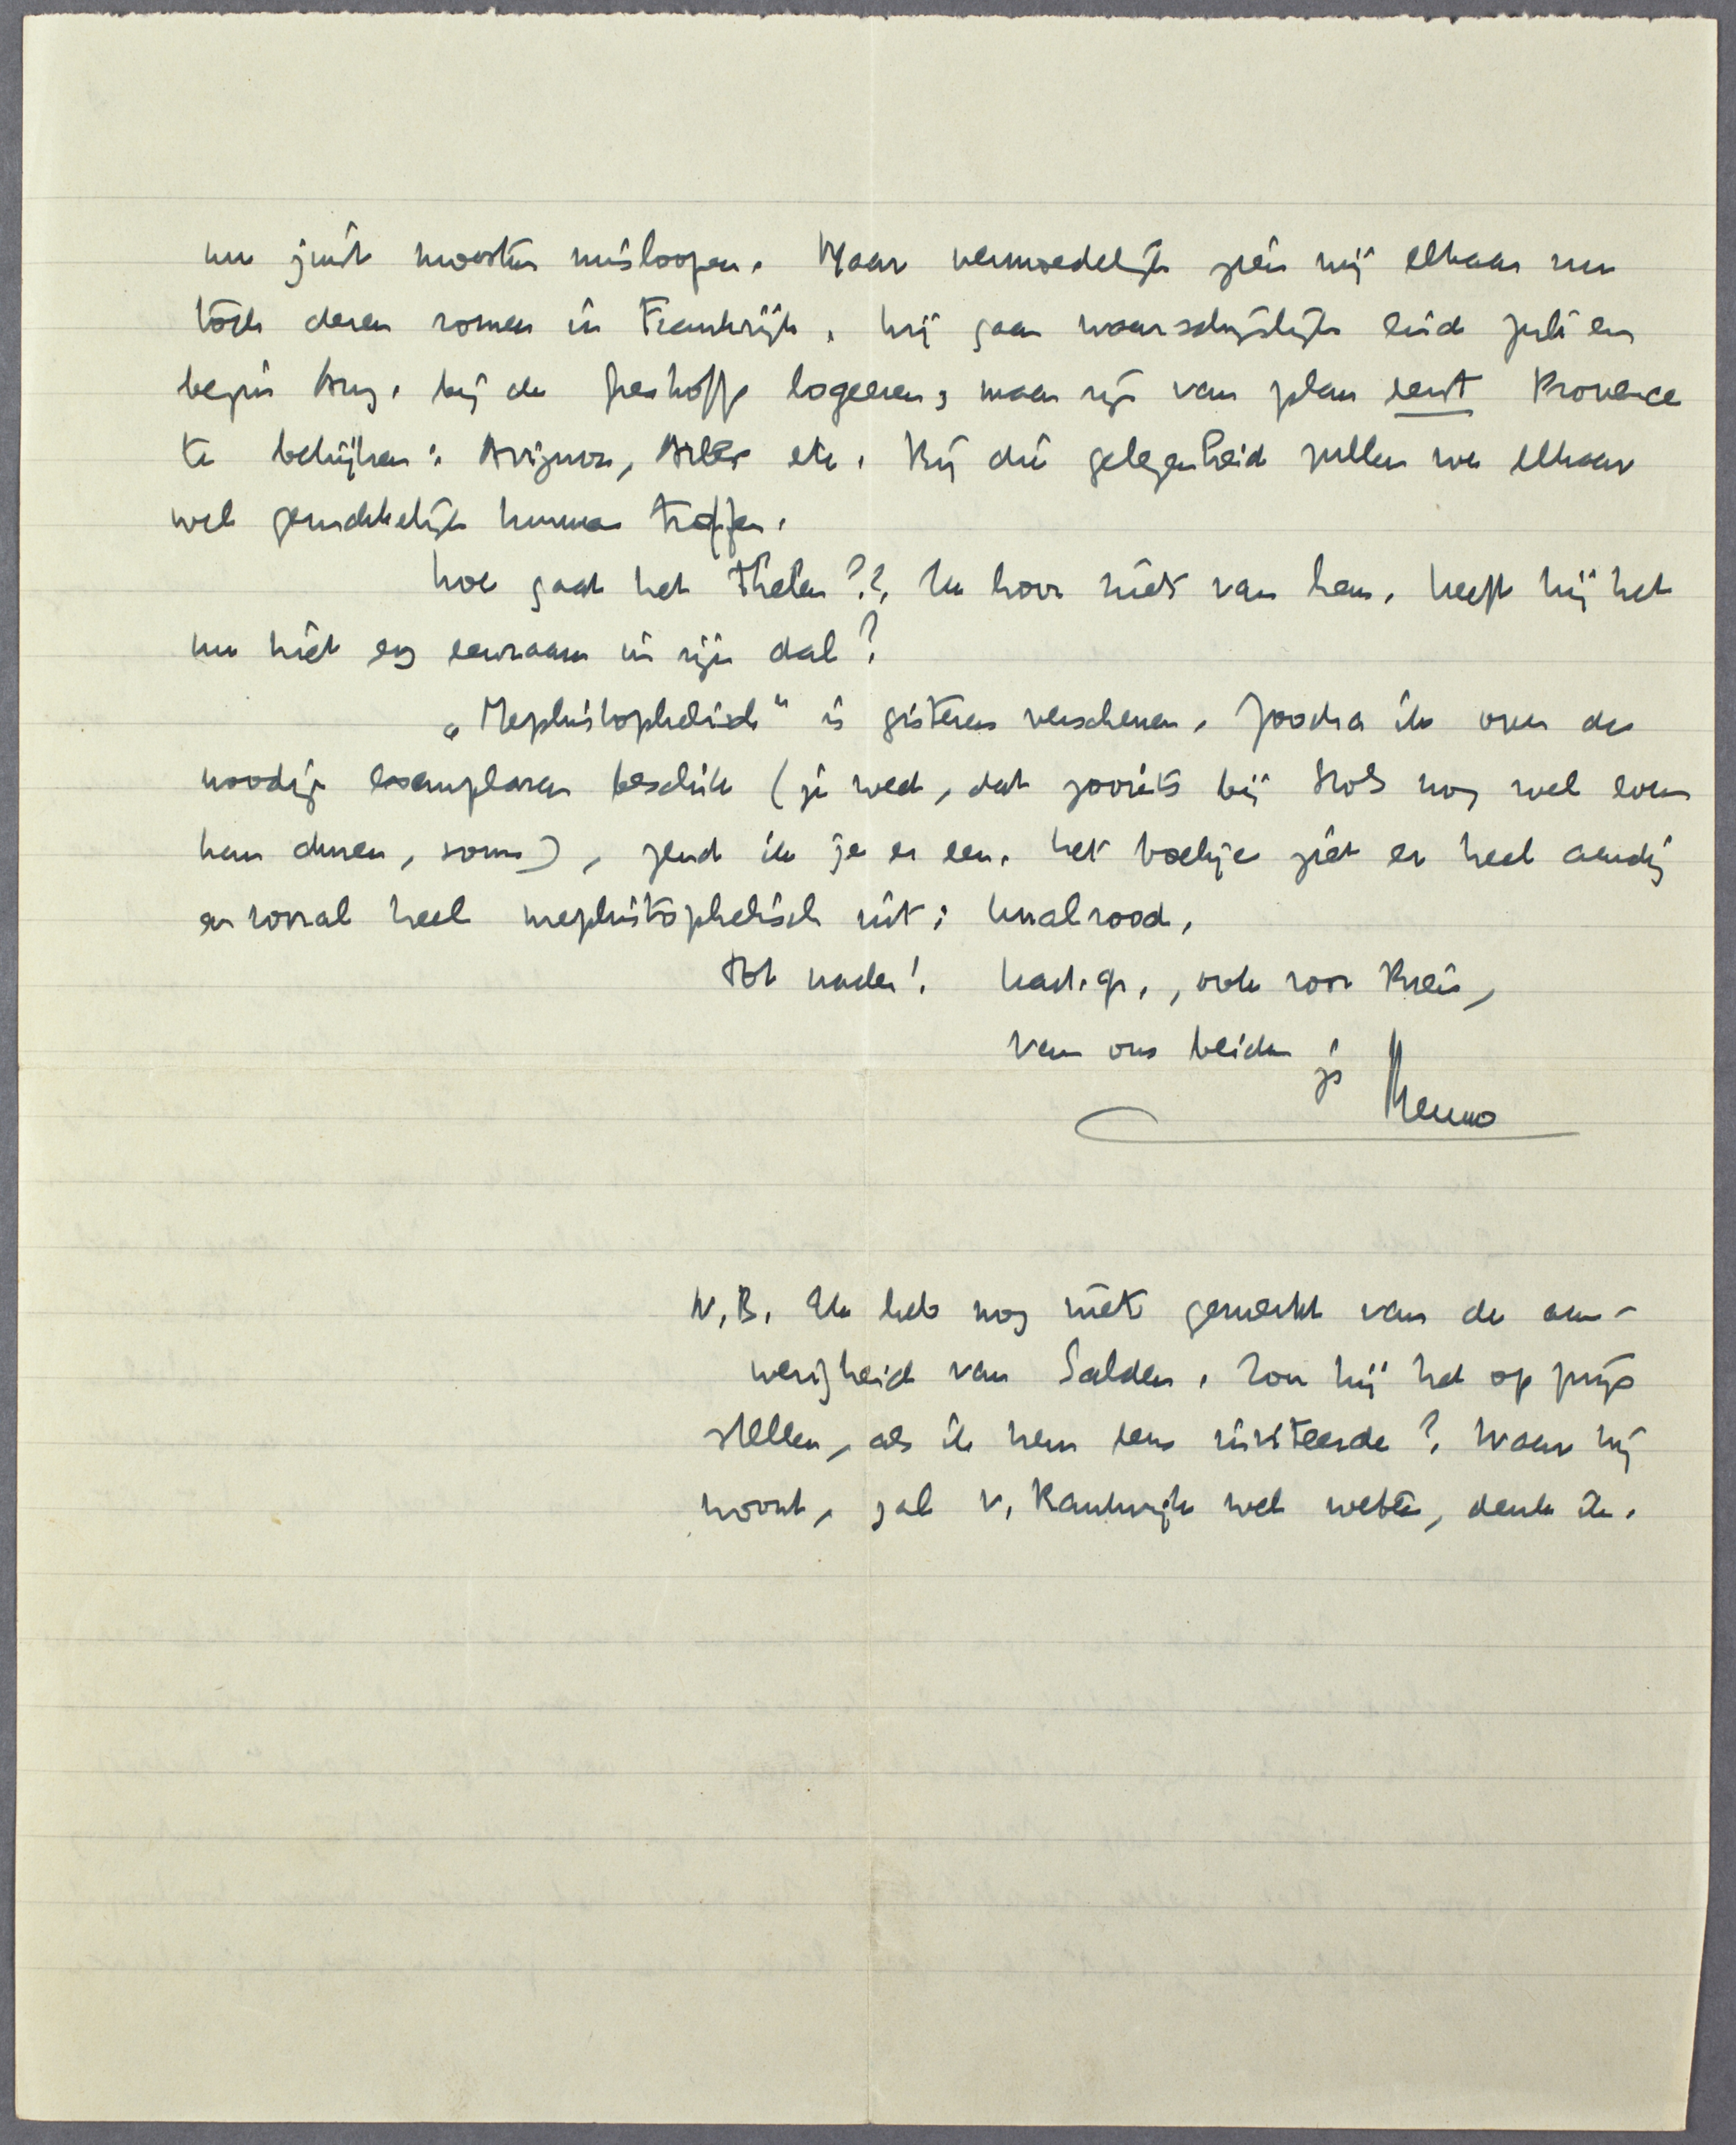 nu juist moesten misloopen. Maar vermoedelijk zien wij elkaar nu
tòch dezen zomer in Frankrijk. Wij gaan waarschijnlijk eind Juli en
begin Aug. bij de Greshoffs logeeren, maar zijn van plan eerst Provence
te bekijken: Avignon, Arles etc. Bij die gelegenheid zullen we elkaar
wel gemakkelijk kunnen treffen.
Hoe gaat het Thelen?? Ik hoor niets van hem. Heeft hij het
nu niet erg eenzaam in zijn dal?
„Mephistophelisch" is gisteren verschenen. Zoodra ik over de
noodige exemplaren beschik (je weet, dat zooiets bij Stols nog wel even
kan duren, soms), zend ik je er een. Het boekje ziet er heel aardig
en vooral heel mephistophelisch uit: knalrood.
Tot nader! Hart. gr., ook voor Krein,
van ons beiden je Menno
N.B. Ik heb nog niets gemerkt van de aan-
wezigheid van Salden. Zou hij het op prijs
stellen, als ik hem eens inviteerde? Waar hij
woont, zal v. Kranendijk wel weten, denk ik.